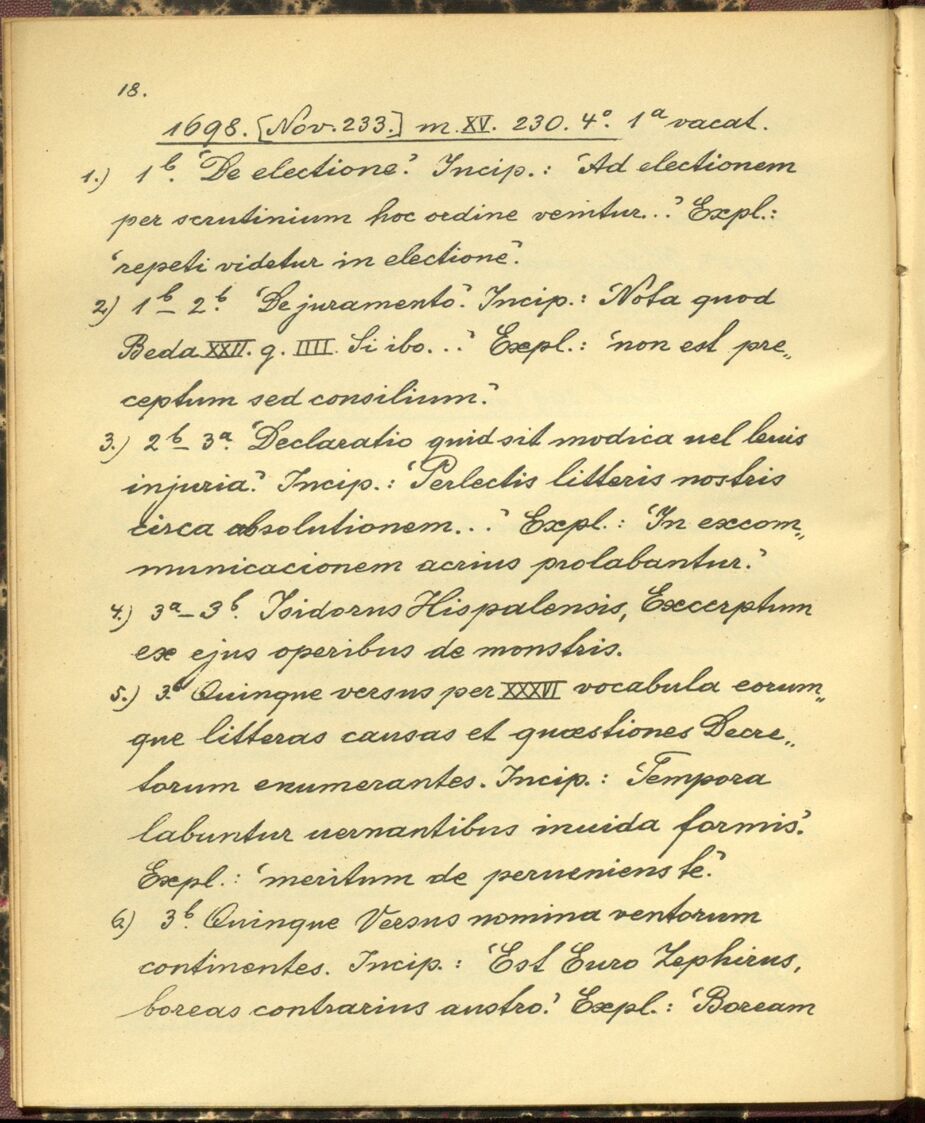 18.
1698. [Nov. 233.] m. XV. 230. 4°. 1ª vacat.
1.) 1ᵇ. 'De electione'. Incip.: 'Ad electionem
per scrutinium hoc ordine venitur..' Expl.:
'repeti videtur in electione'.
2.) 1ᵇ–2ᵇ. 'De juramento'. Incip.: 'Nota quod
Beda XXII. q. IIII. Si ibo...' Expl.: 'non est pre„
ceptum sed consilium'.
3.) 2ᵇ–3ª. 'Declaratio quid sit modica uel leuis
injuria'. Incip.: 'Perlectis litteris nostris
circa absolutionem...' Expl.: 'In excom„
municacionem acrius prolabantur.'
4.) 3ª–3ᵇ. Isidorus Hispalensis, Excerptum
ex ejus operibus de monstris.
5.) 3ᵇ. Quinque versus per XXXVI vocabula eorum„
que litteras causas et quæstiones Decre„
torum enumerantes. Incip.: 'Tempora
labuntur uernantibus inuida formis'.
Expl.: 'meritum de perueniens te'.
6.) 3ᵇ. Quinque Versus nomina ventorum
continentes. Incip.: 'Est Euro Zephirus,
boreas contrarius austro.' Expl.: 'Boream